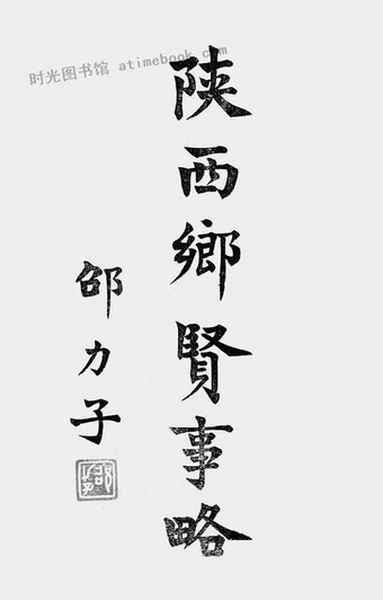 时光图书馆 atimebook.com
陝西鄉賢事略
邵力子